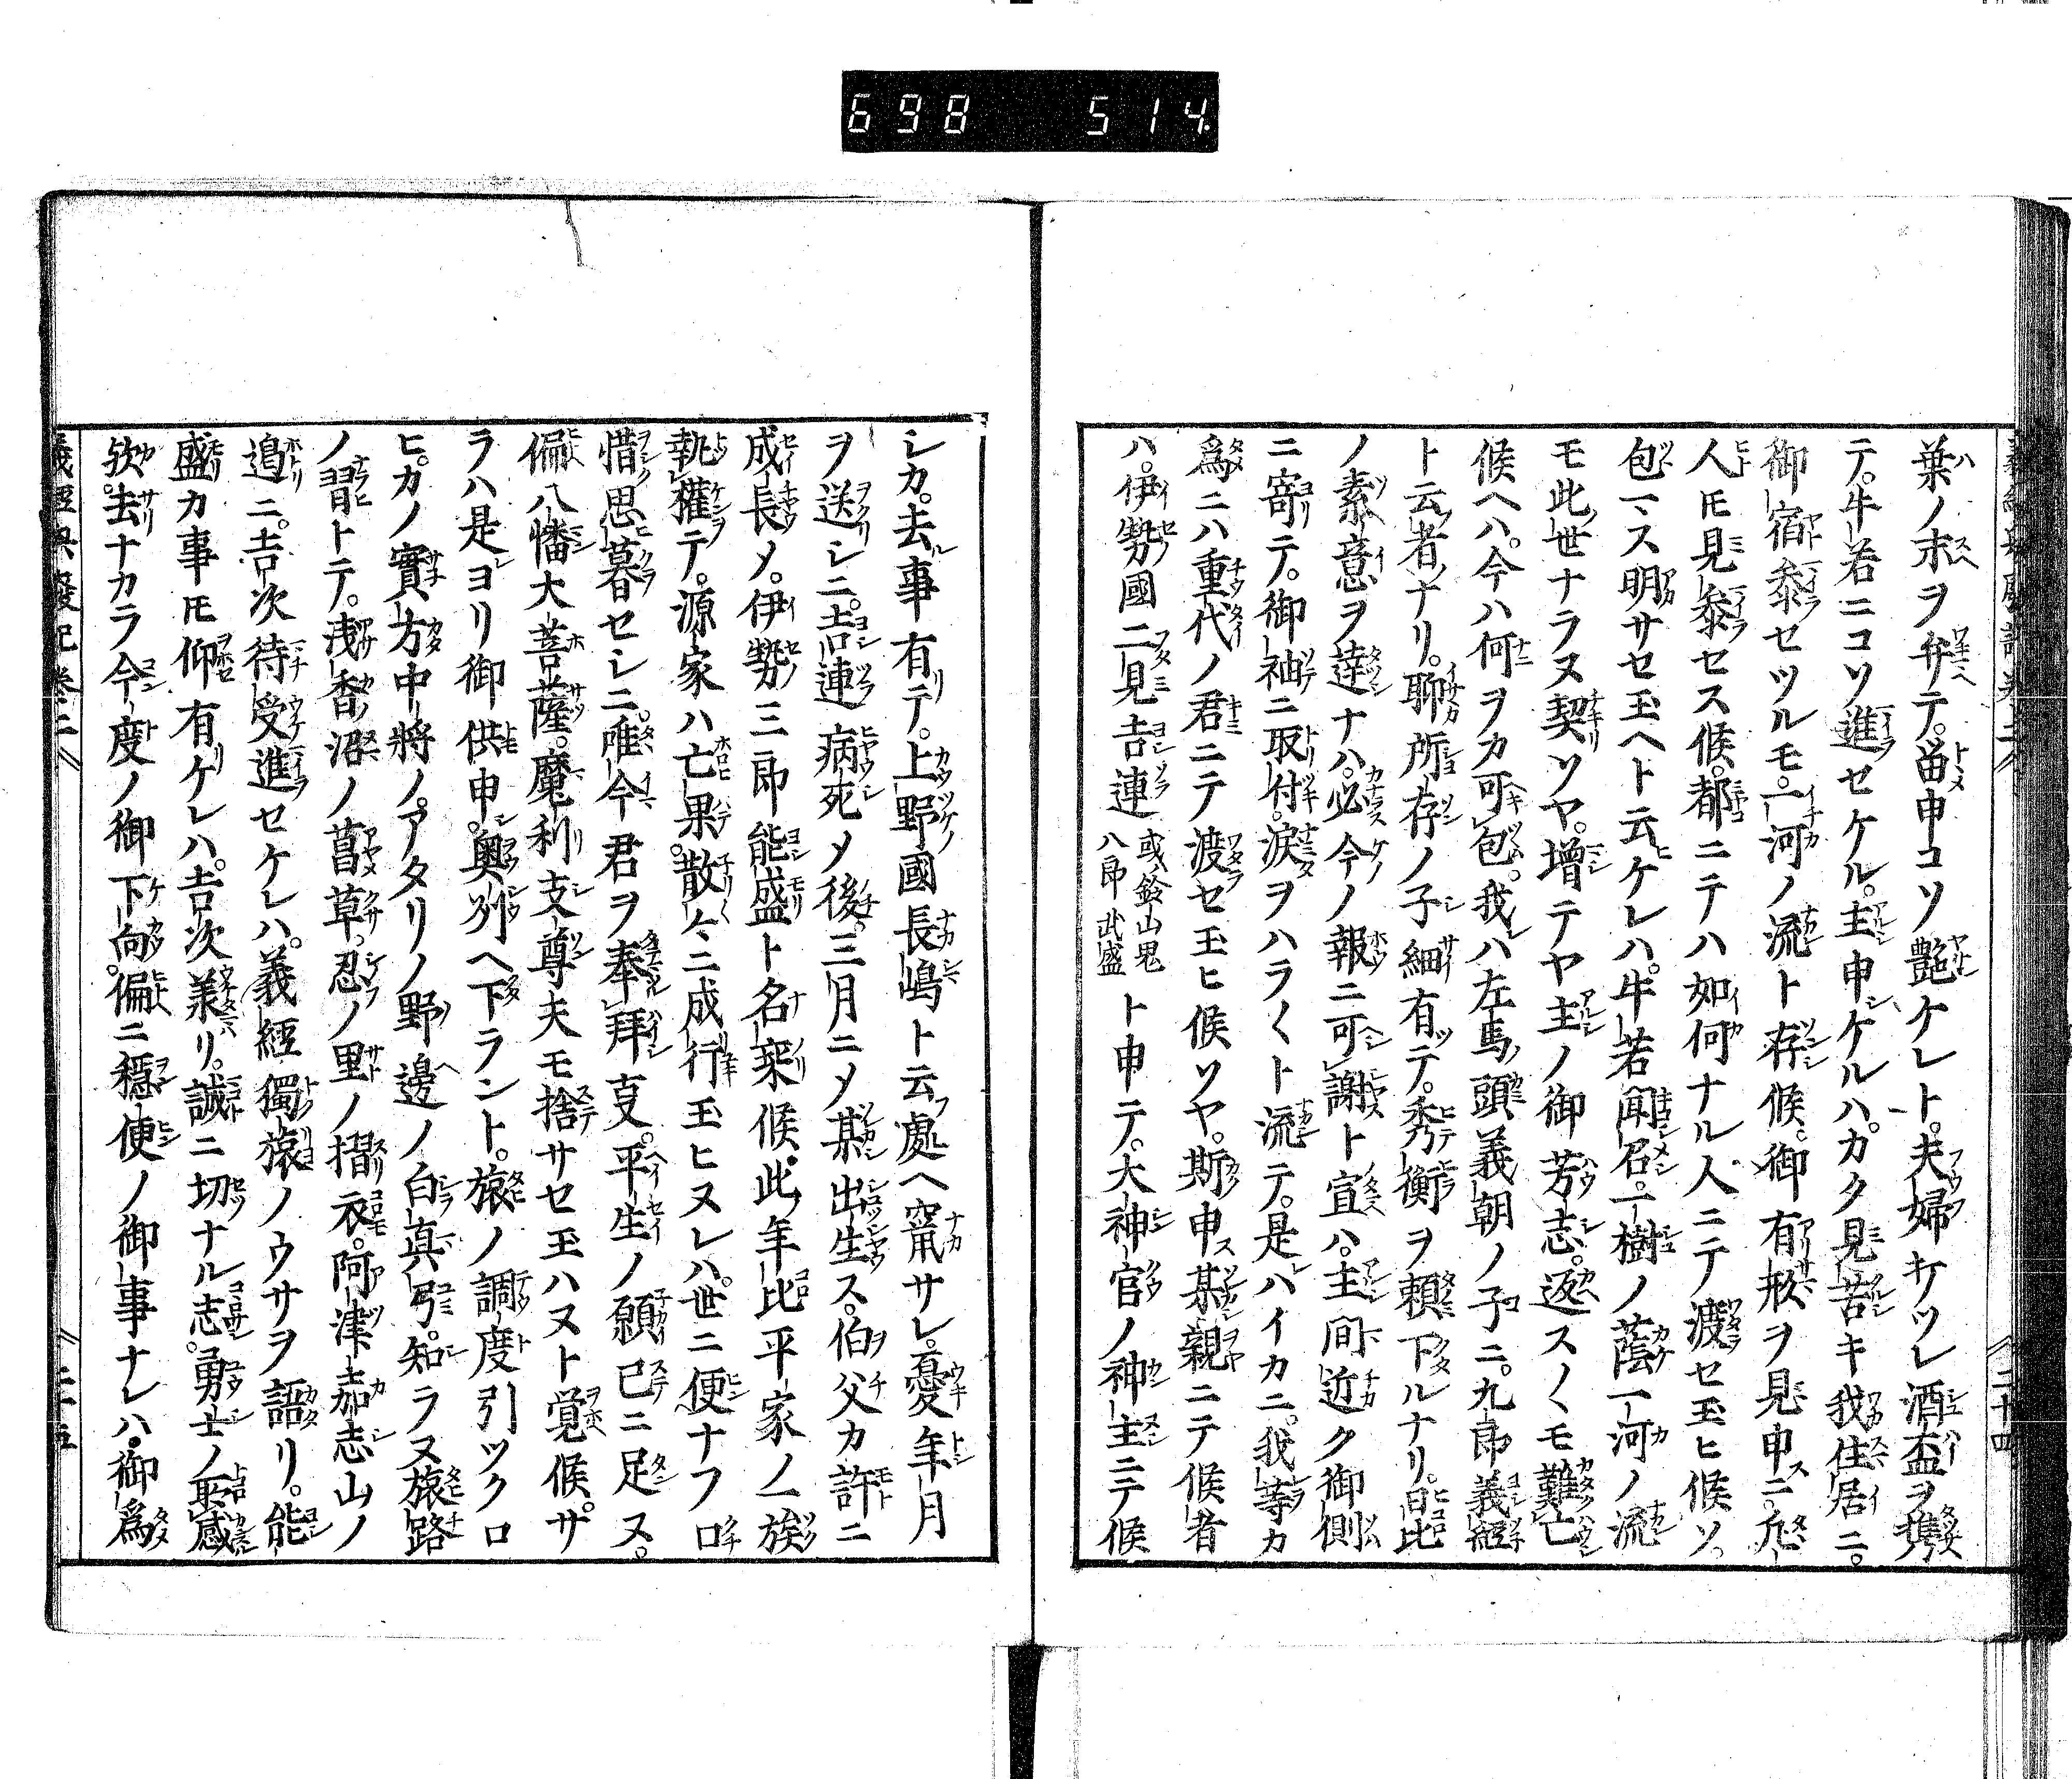 698 514
葉ノ末ヲ弁テ。畄申コソ艶ケレト。夫婦キツレ酒盃ヲ携
テ。牛若ニコソ進セケル。主申ケルハ。カタ見苦キ我住居ニ。
御宿参セツルモ。一河ノ流ト存候。御有形ヲ見申ニ。凡
人𪜈見参セス候。都ニテハ如何ナル人ニテノ渡セ玉ヒ候ソ。
包マス明サセ玉ヘト云ケレハ。牛若聞召。一樹ノ蔭一河ノ流
モ此世ナラヌ契ソヤ。増テヤ主ノ御芳志。返ス〱モ難亡
候ヘハ。今ハ何ヲカ可包。我ハ左馬頭義朝ノ子ニ。九郎義經
ト云者ナリ。聊所存ノ子細有テ。秀衡ヲ頼下ルナリ。日比
ノ素意ヲ達ナハ。必今ノ報ニ可謝ト宣ハ。主間近ク御側
ニ寄テ。御袖ニ取付。涙ヲハラ〱ト流テ。是ハイカニ。我等カ
爲ニハ重代ノ君ニテ渡セ玉ヒ候ソヤ。斯申某親ニテ候者
ハ。伊勢國二見吉連 或鈴山鬼八郎武盛 ト申テ。大神官ノ神主ニテ候
シカ。去事有テ。上野國長嶋ト云處ヘ竄サレ。憂年月
ヲ送シニ。吉連病死メ後。三月ニメ某出生ス。伯父カ許ニ
成長メ。伊勢三郎能盛ト名乗候。此年比平家ノ一族
執權テ。源家ハ亡果。散〻ニ成行玉ヒヌレハ。世ニ便ナフ口
惜思暮セシニ。唯今君ヲ奉拜支。平生ノ願已ニ足ス。
偏八幡大菩薩。魔利支尊夫モ捨サセ玉ハヌト覚候。ザ
ラハ是ヨリ御供申。奥州ヘ下ラント。旅ノ調度引ツクロ
ヒ。カノ實方中將ノ。アタリノ野邊ノ白真弓。知ラヌ旅路
ノ習トテ。浅香ノ沼ノ菖草。忍ノ里ノ摺衣。阿津嘉志山ノ
邉ニ。吉次待受進セケレハ。義經獨旅ノウサヲ語リ。能
盛カ事𪜈仰有ケレハ。吉次羕リ。誠ニ切ナル志。勇士ノ感
欤。去ナカラ今度ノ御下向。偏ニ穏便ノ御事ナレハ。御爲
義經興廢記巻二 二十五